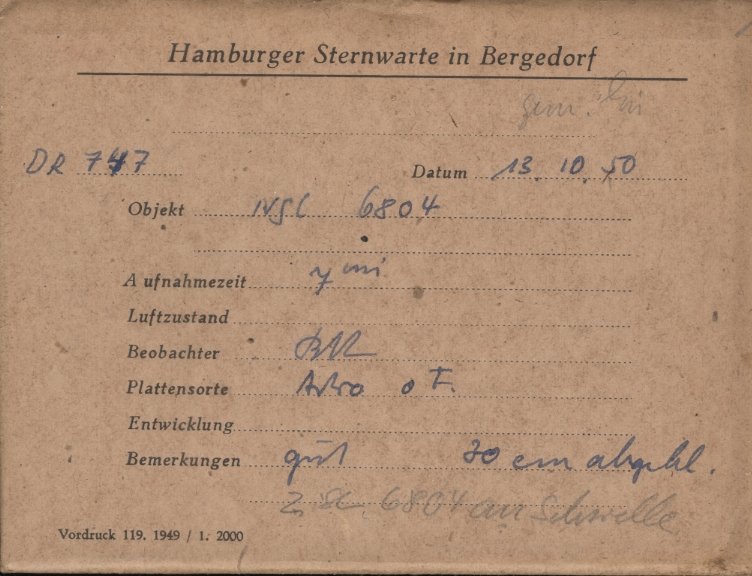 Hamburger Sternwarte in Bergedorf
DR 747 Datum 13. 10. 50
Objekt NGC 6804
Aufnahmezeit 7 mi
Luftzustand
Beobachter
Plattensorte Astro o F.
Entwicklung
Bemerkungen gut 30 cm abgebl.
6804 an Schwelle
Vordruck 119. 1949 / 1. 2000